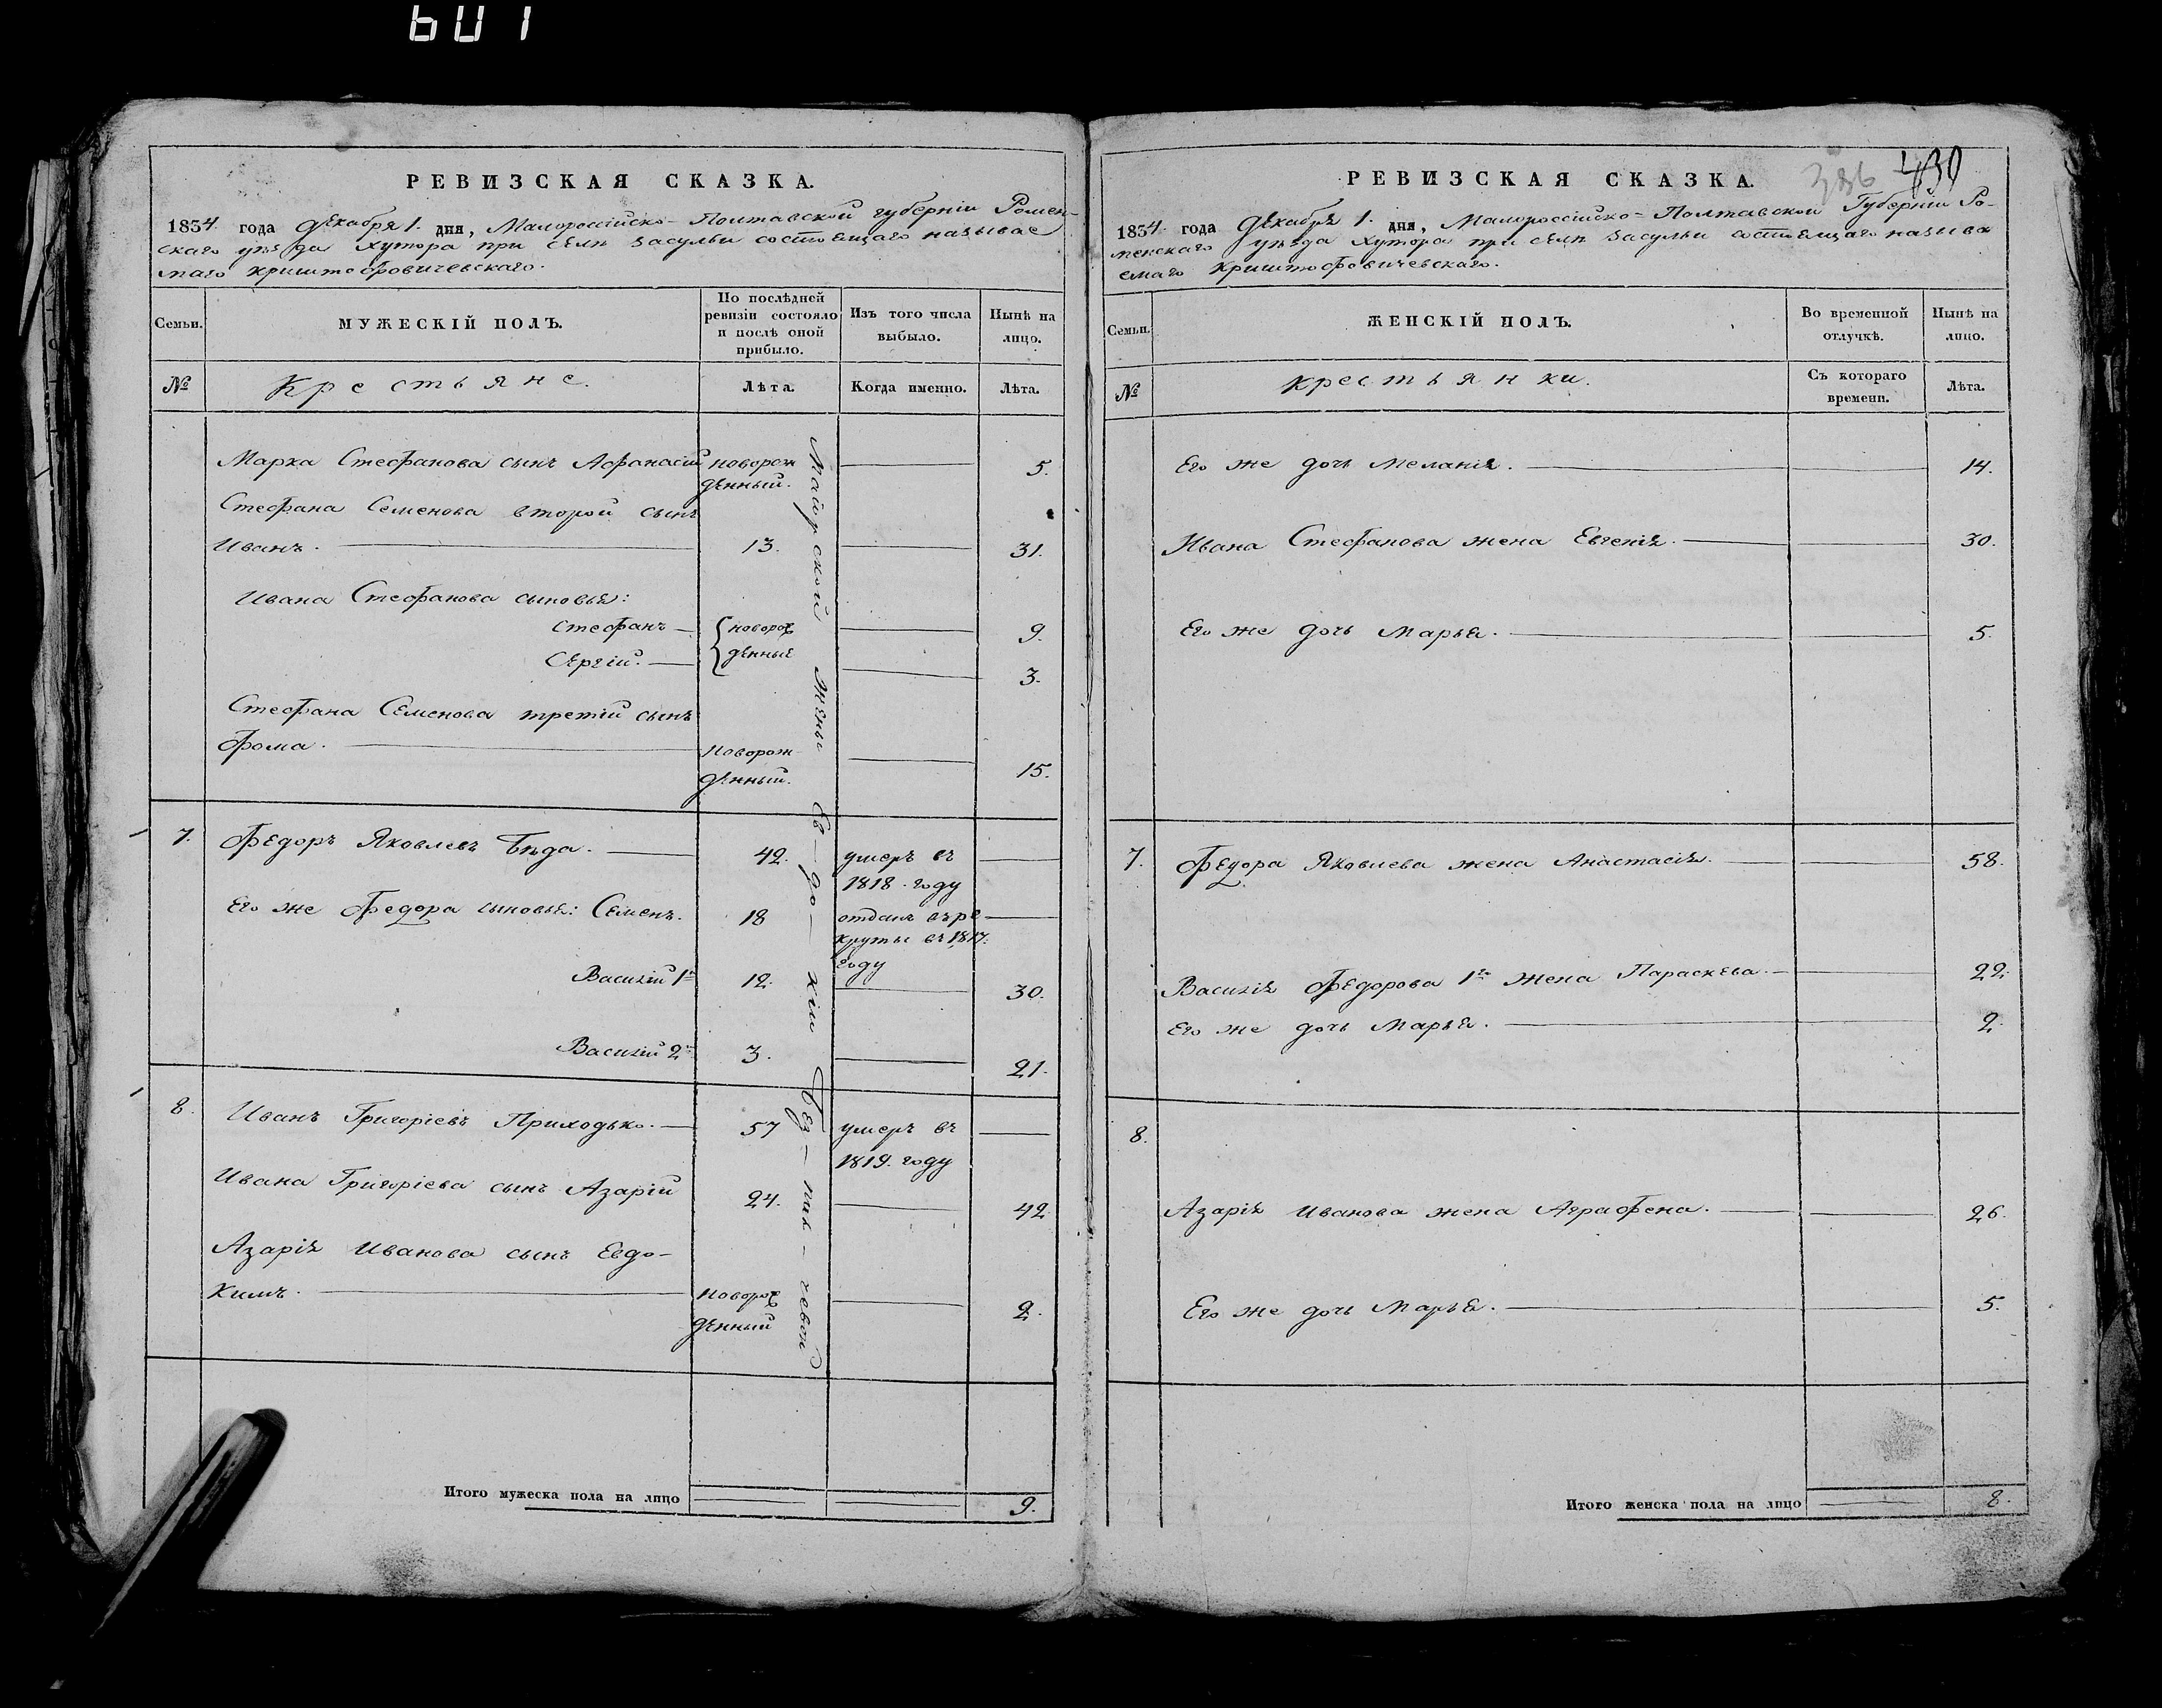 601
РЕВИЗСКАЯ СКАЗКА.
1834 года Декабря 1. дня, Малороссійско-Полтавской губерніи Ромен-
скаго уѣзда Хутора при селѣ Засульи состоящаго называе
маго Криштофовичевскаго.
Семьи.
МУЖЕСКІЙ ПОЛЪ.
По послѣдней
ревизіи состояло
и послѣ оной
прибыло.
Изъ того числа
выбыло.
Нынѣ на
лицо.
№
Крестьяне.
Лѣта.
Когда именно.
Лѣта.
Марка Стефанова сынъ Афанасій новорож 5.
денный.
Стефана Семенова второй сынъ
Иванъ. 13. 31.
Ивана Стефанова сыновья:
Стефанъ новорож 9.
Сергій. денные 3.
Стефана Семенова третій сынъ
Фома. новорож
денный. 15.
7. Федоръ Яковлевъ Бѣда. 42. умеръ въ
1818. году
Его же Федора сыновья: Семенъ. 18 отданъ въ ре
круты въ 1817.
году
Василій 1й 12. 30.
Василій 2й 3. 21.
8. Иванъ Григоріевъ Приходько. 57 умеръ въ
1819. году
Ивана Григоріева сынъ Азарій 24. 42
Азарія Иванова сынъ Евдо-
кимъ. новорож 2.
денный
Маіорской жены Ев-до-кіи Без-пал-чевой
Итого мужеска пола на лицо 9.
РЕВИЗСКАЯ СКАЗКА.
386 430
1834 года Декабря 1. дня, Малороссійско-Полтавской Губерніи Ро-
менскаго уѣзда Хутора при селѣ Засульи состоящаго называ
емаго Криштофовичевскаго.
Семьи.
ЖЕНСКІЙ ПОЛЪ.
Во временной
отлучкѣ.
Нынѣ на
лицо.
№
Крестьянки.
Съ котораго
времени.
Лѣта.
Его же дочь Меланія. 14.
Ивана Стефанова жена Евгенія. 30.
Его же дочь Марья. 5.
7. Федора Яковлева жена Анастасія. 58.
Василія Федорова 1го жена Параскева. 22.
Его же дочь Марья. 2.
8.
Азарія Иванова жена Аграфена. 26.
Его же дочь Марья. 5.
Итого женска пола на лицо 8.